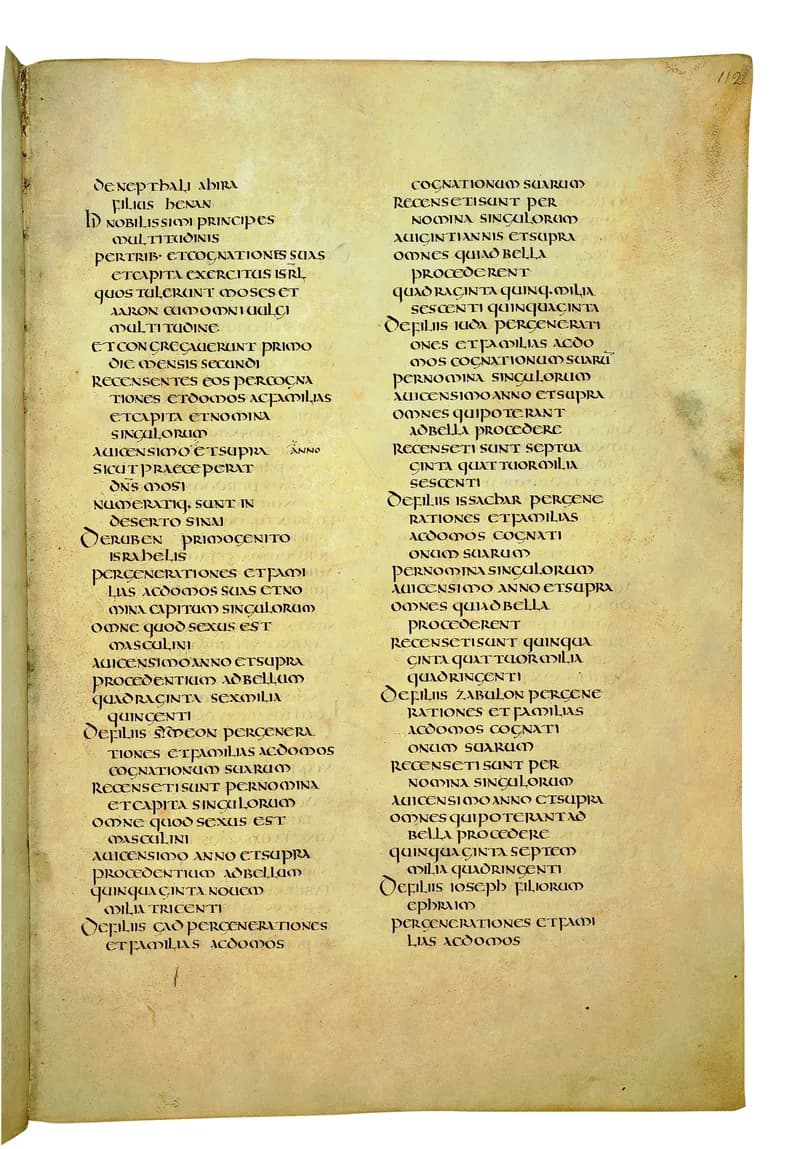 112
de nepthali ahira
filius henan
hi nobilissimi principes
multitudinis
per trib· et cognationes suas
et capita exercitus isrl̄
quos tulerunt moses et
aaron cum omni uulgi
multitudine
et congregauerunt primo
die mensis secundi
recensentes eos per cogna
tiones et domos ac familias
et capita et nomina
singulorum
a uicensimo et supra anno
sicut praeceperat
dn̄s mosi
numeratiq· sunt in
deserto sinai
De ruben primogenito
israhelis
per generationes et fami
lias ac domos suas et no
mina capitum singulorum
omne quod sexus est
masculini
a uicensimo anno et supra
procedentium ad bellum
quadraginta sex milia
quingenti
De filiis symeon per genera
tiones et familias ac domos
cognationum suarum
recensiti sunt per nomina
et capita singulorum
omne quod sexus est
masculini
a uicensimo anno et supra
procedentium ad bellum
quinquaginta nouem
milia tricenti
De filiis gad per generationes
et familias ac domos
cognationum suarum
recensiti sunt per
nomina singulorum
a uiginti annis et supra
omnes qui ad bella
procederent
quadraginta quinq· milia
sescenti quinquaginta
De filiis iuda per generati
ones et familias ac do
mos cognationum suarū
per nomina singulorum
a uicensimo anno et supra
omnes qui poterant
ad bella procedere
recensiti sunt septua
ginta quattuor milia
sescenti
De filiis issachar per gene
rationes et familias
ac domos cognati
onum suarum
per nomina singulorum
a uicensimo anno et supra
omnes qui ad bella
procederent
recensiti sunt quinqua
ginta quattuor milia
quadringenti
De filiis zabulon per gene
rationes et familias
ac domos cognati
onum suarum
recensiti sunt per
nomina singulorum
a uicensimo anno et supra
omnes qui poterant ad
bella procedere
quinquaginta septem
milia quadringenti
De filiis ioseph filiorum
ephraim
per generationes et fami
lias ac domos